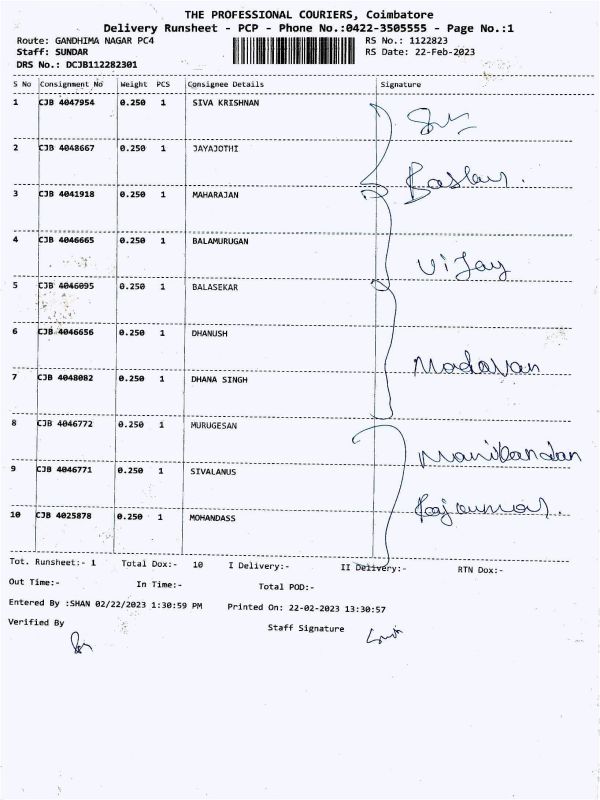 THE PROFESSIONAL COURIERS, Coimbatore
Delivery Runsheet - PCP - Phone No.:0422-3505555 - Page No.:1
Route: GANDHIMA NAGAR PC4 RS No.: 1122823
Staff: SUNDAR RS Date: 22-Feb-2023
DRS No.: DCJB112282301
S No Consignment No Weight PCS Consignee Details Signature
1 CJB 4047954 0.250 1 SIVA KRISHNAN
2 CJB 4048667 0.250 1 JAYAJOTHI
Baskar.
3 CJB 4041918 0.250 1 MAHARAJAN
4 CJB 4046665 0.250 1 BALAMURUGAN
Vijay
5 CJB 4046095 0.250 1 BALASEKAR
6 CJB 4046656 0.250 1 DHANUSH
Madavan
7 CJB 4048082 0.250 1 DHANA SINGH
8 CJB 4046772 0.250 1 MURUGESAN
Manikandan
9 CJB 4046771 0.250 1 SIVALANUS
10 CJB 4025878 0.250 1 MOHANDASS
Tot. Runsheet:- 1 Total Dox:- 10 I Delivery:- II Delivery:- RTN Dox:-
Out Time:- In Time:- Total POD:-
Entered By :SHAN 02/22/2023 1:30:59 PM Printed On: 22-02-2023 13:30:57
Verified By Staff Signature